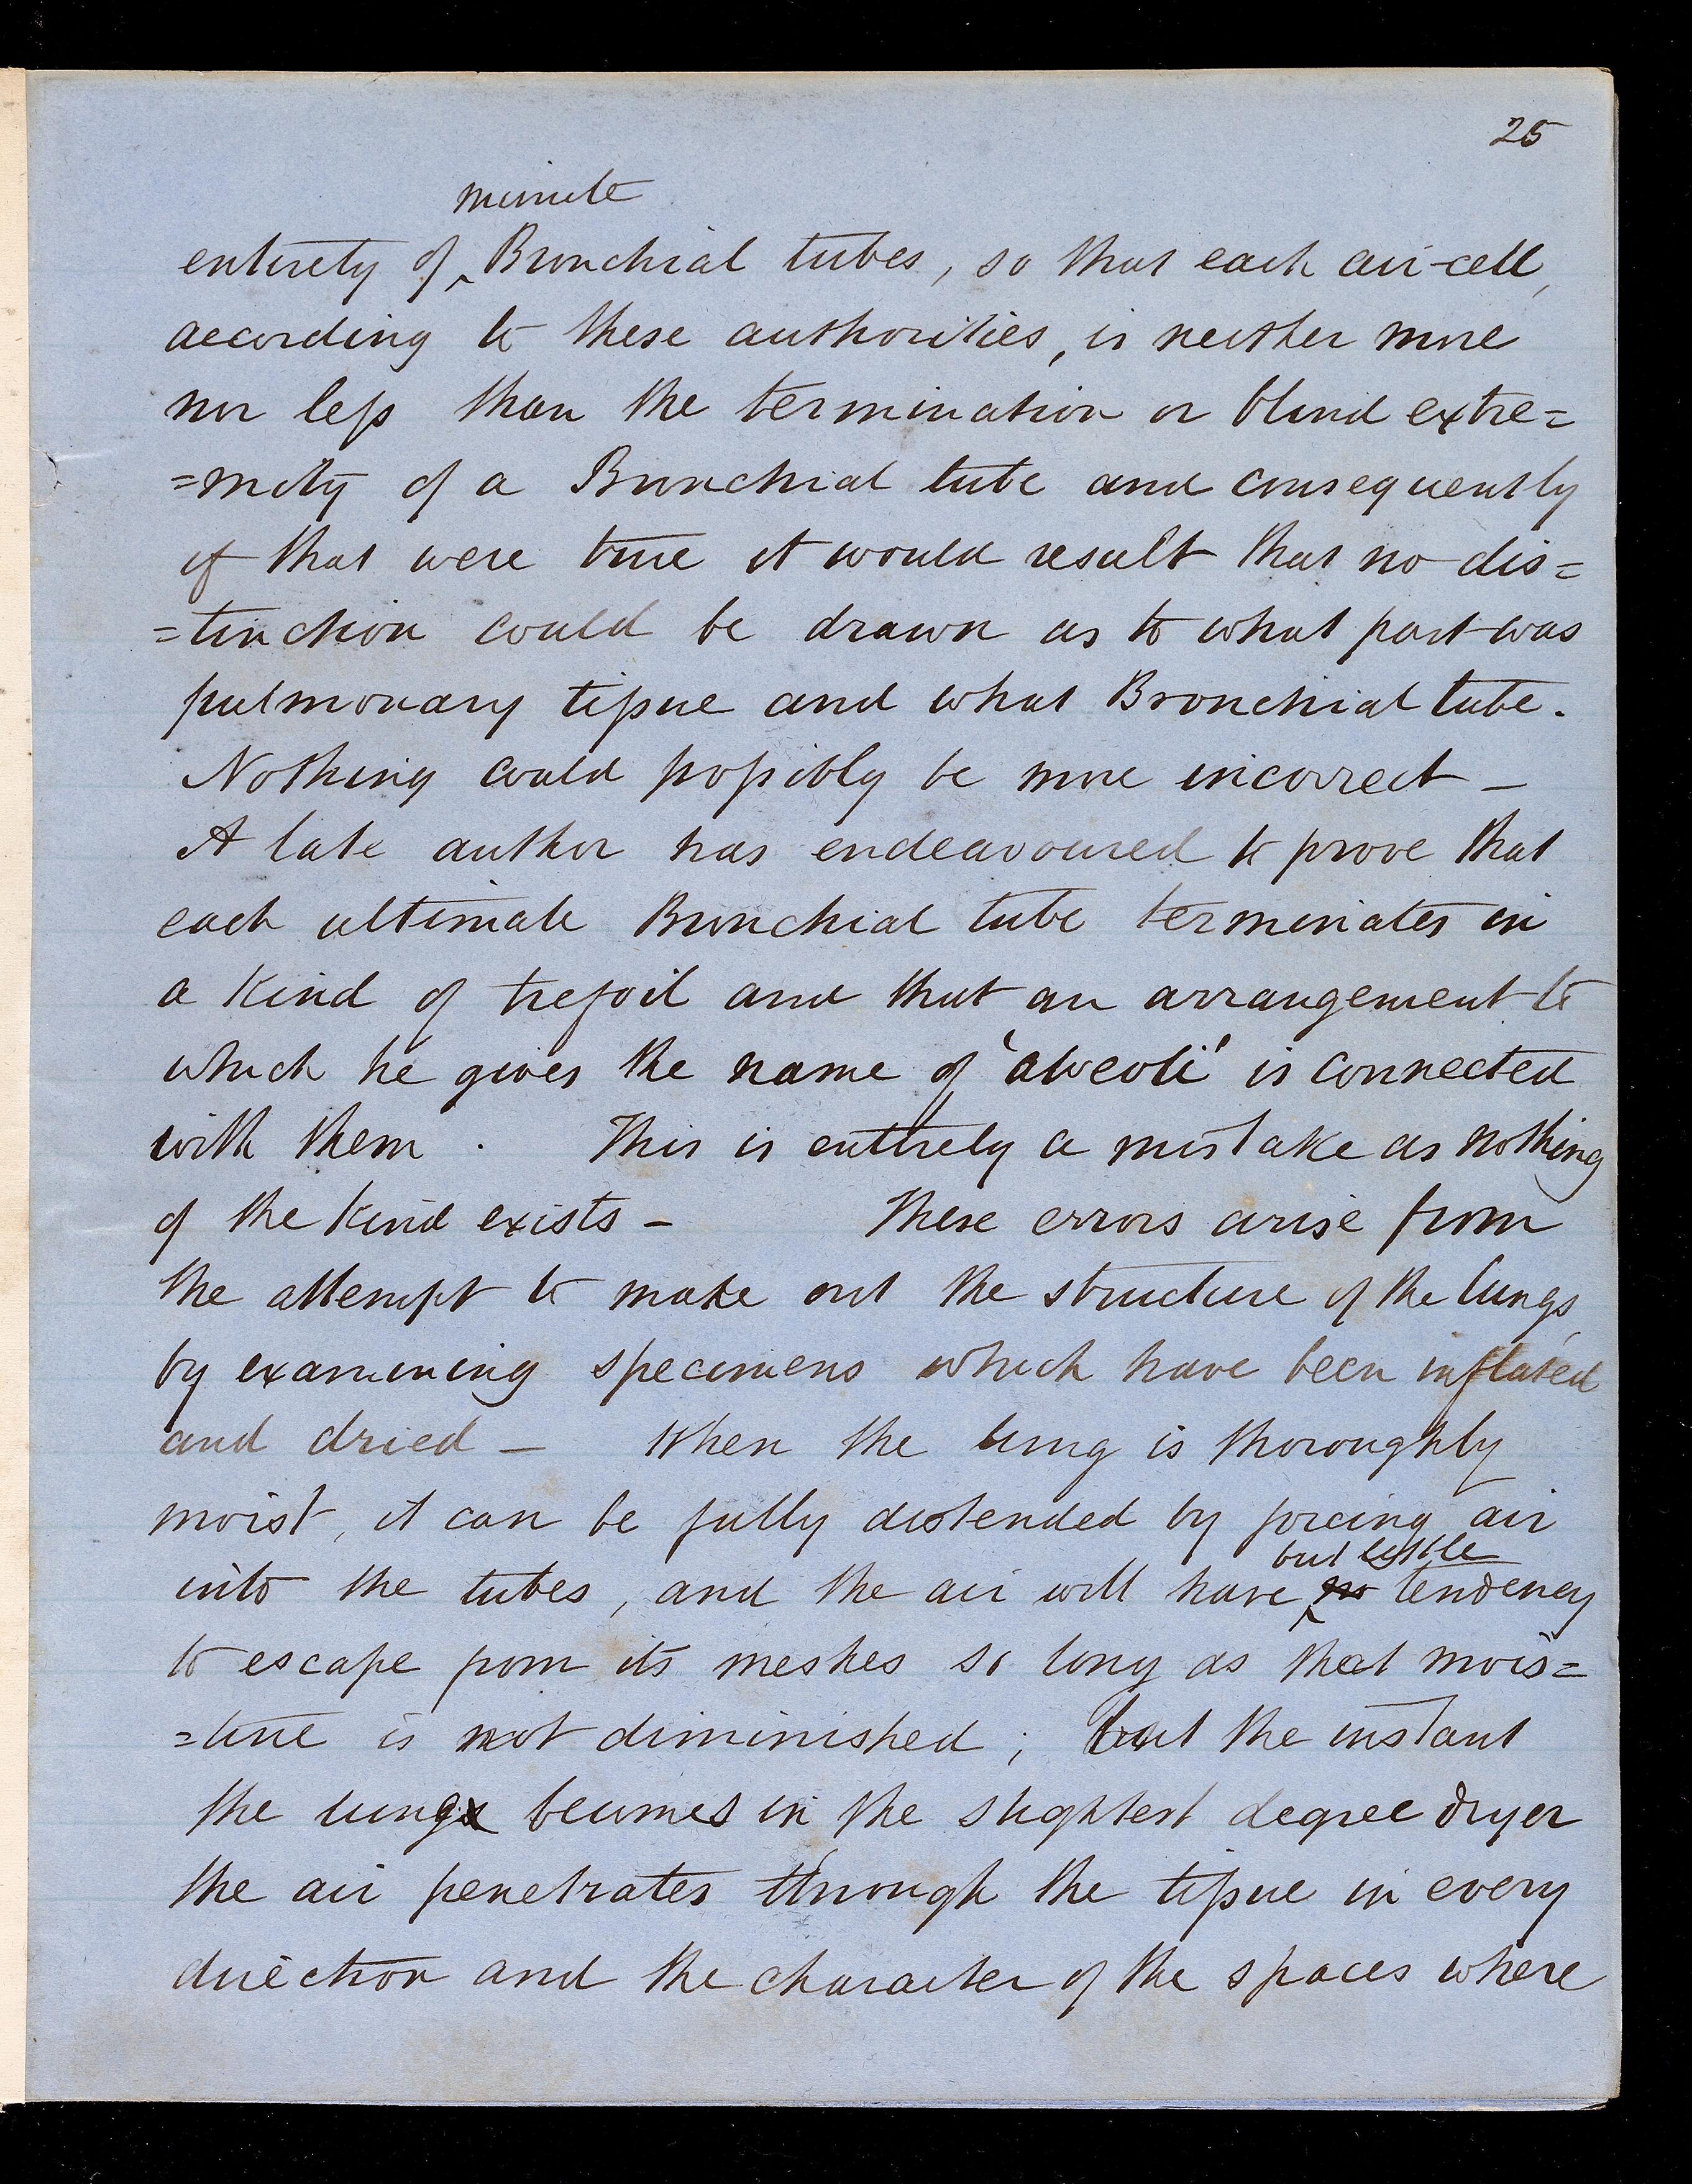 25
minute
entirety of ‸ Bronchial tubes, so that each air-cell,
according to these authorities, is neither more
nor less than the termination or blind extre=
=mity of a Bronchial tube and consequently
if that were true it would result that no dis=
=tinction could be drawn as to what part was
pulmonary tissue and what Bronchial tube.
Nothing could possibly be more incorrect –
A late author has endeavoured to prove that
each ultimate Bronchial tube terminates in
a kind of trefoil and that an arrangement to
which he gives the name of 'alveoli' is connected
with them. This is entirely a mistake as nothing
of the kind exists – These errors arise from
the attempt to make out the structure of the lungs,
by examining specimens which have been inflated
and dried – When the lung is thoroughly
moist, it can be fully distended by forcing air
but little
into the tubes, and the air will have ‸ no tendency
to escape from its meshes so long as that mois=
=ture is not diminished; but the instant
the lung becomes in the slightest degree dryer
the air penetrates through the tissue in every
direction and the character of the spaces where